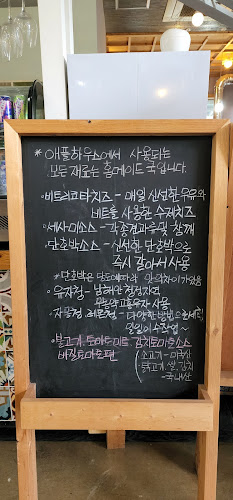 * 애플하우스에서 사용되는
모든 재료는 홈메이드 국입니다.
• 비트리코타치즈 - 매일 신선한 우유와
비트를 사용한 수제치즈
• 세사미소스 - 각종견과류 및 참깨
• 단호박소스 - 신선한 단호박으로
즉시 갈아서 사용
* 단호박은 당도에따라 맛 차이가 있음
• 유자청 - 남해안 청정지역
유자 사용
• 자몽청, 레몬청 - 다양한 방법으로 세척
일일이 수작업~
• 불고기, 토마토미트, 김치토마토소스
바질토마토
소고기 - 미국산
돼지고기, 쌀, 김치
- 국내산